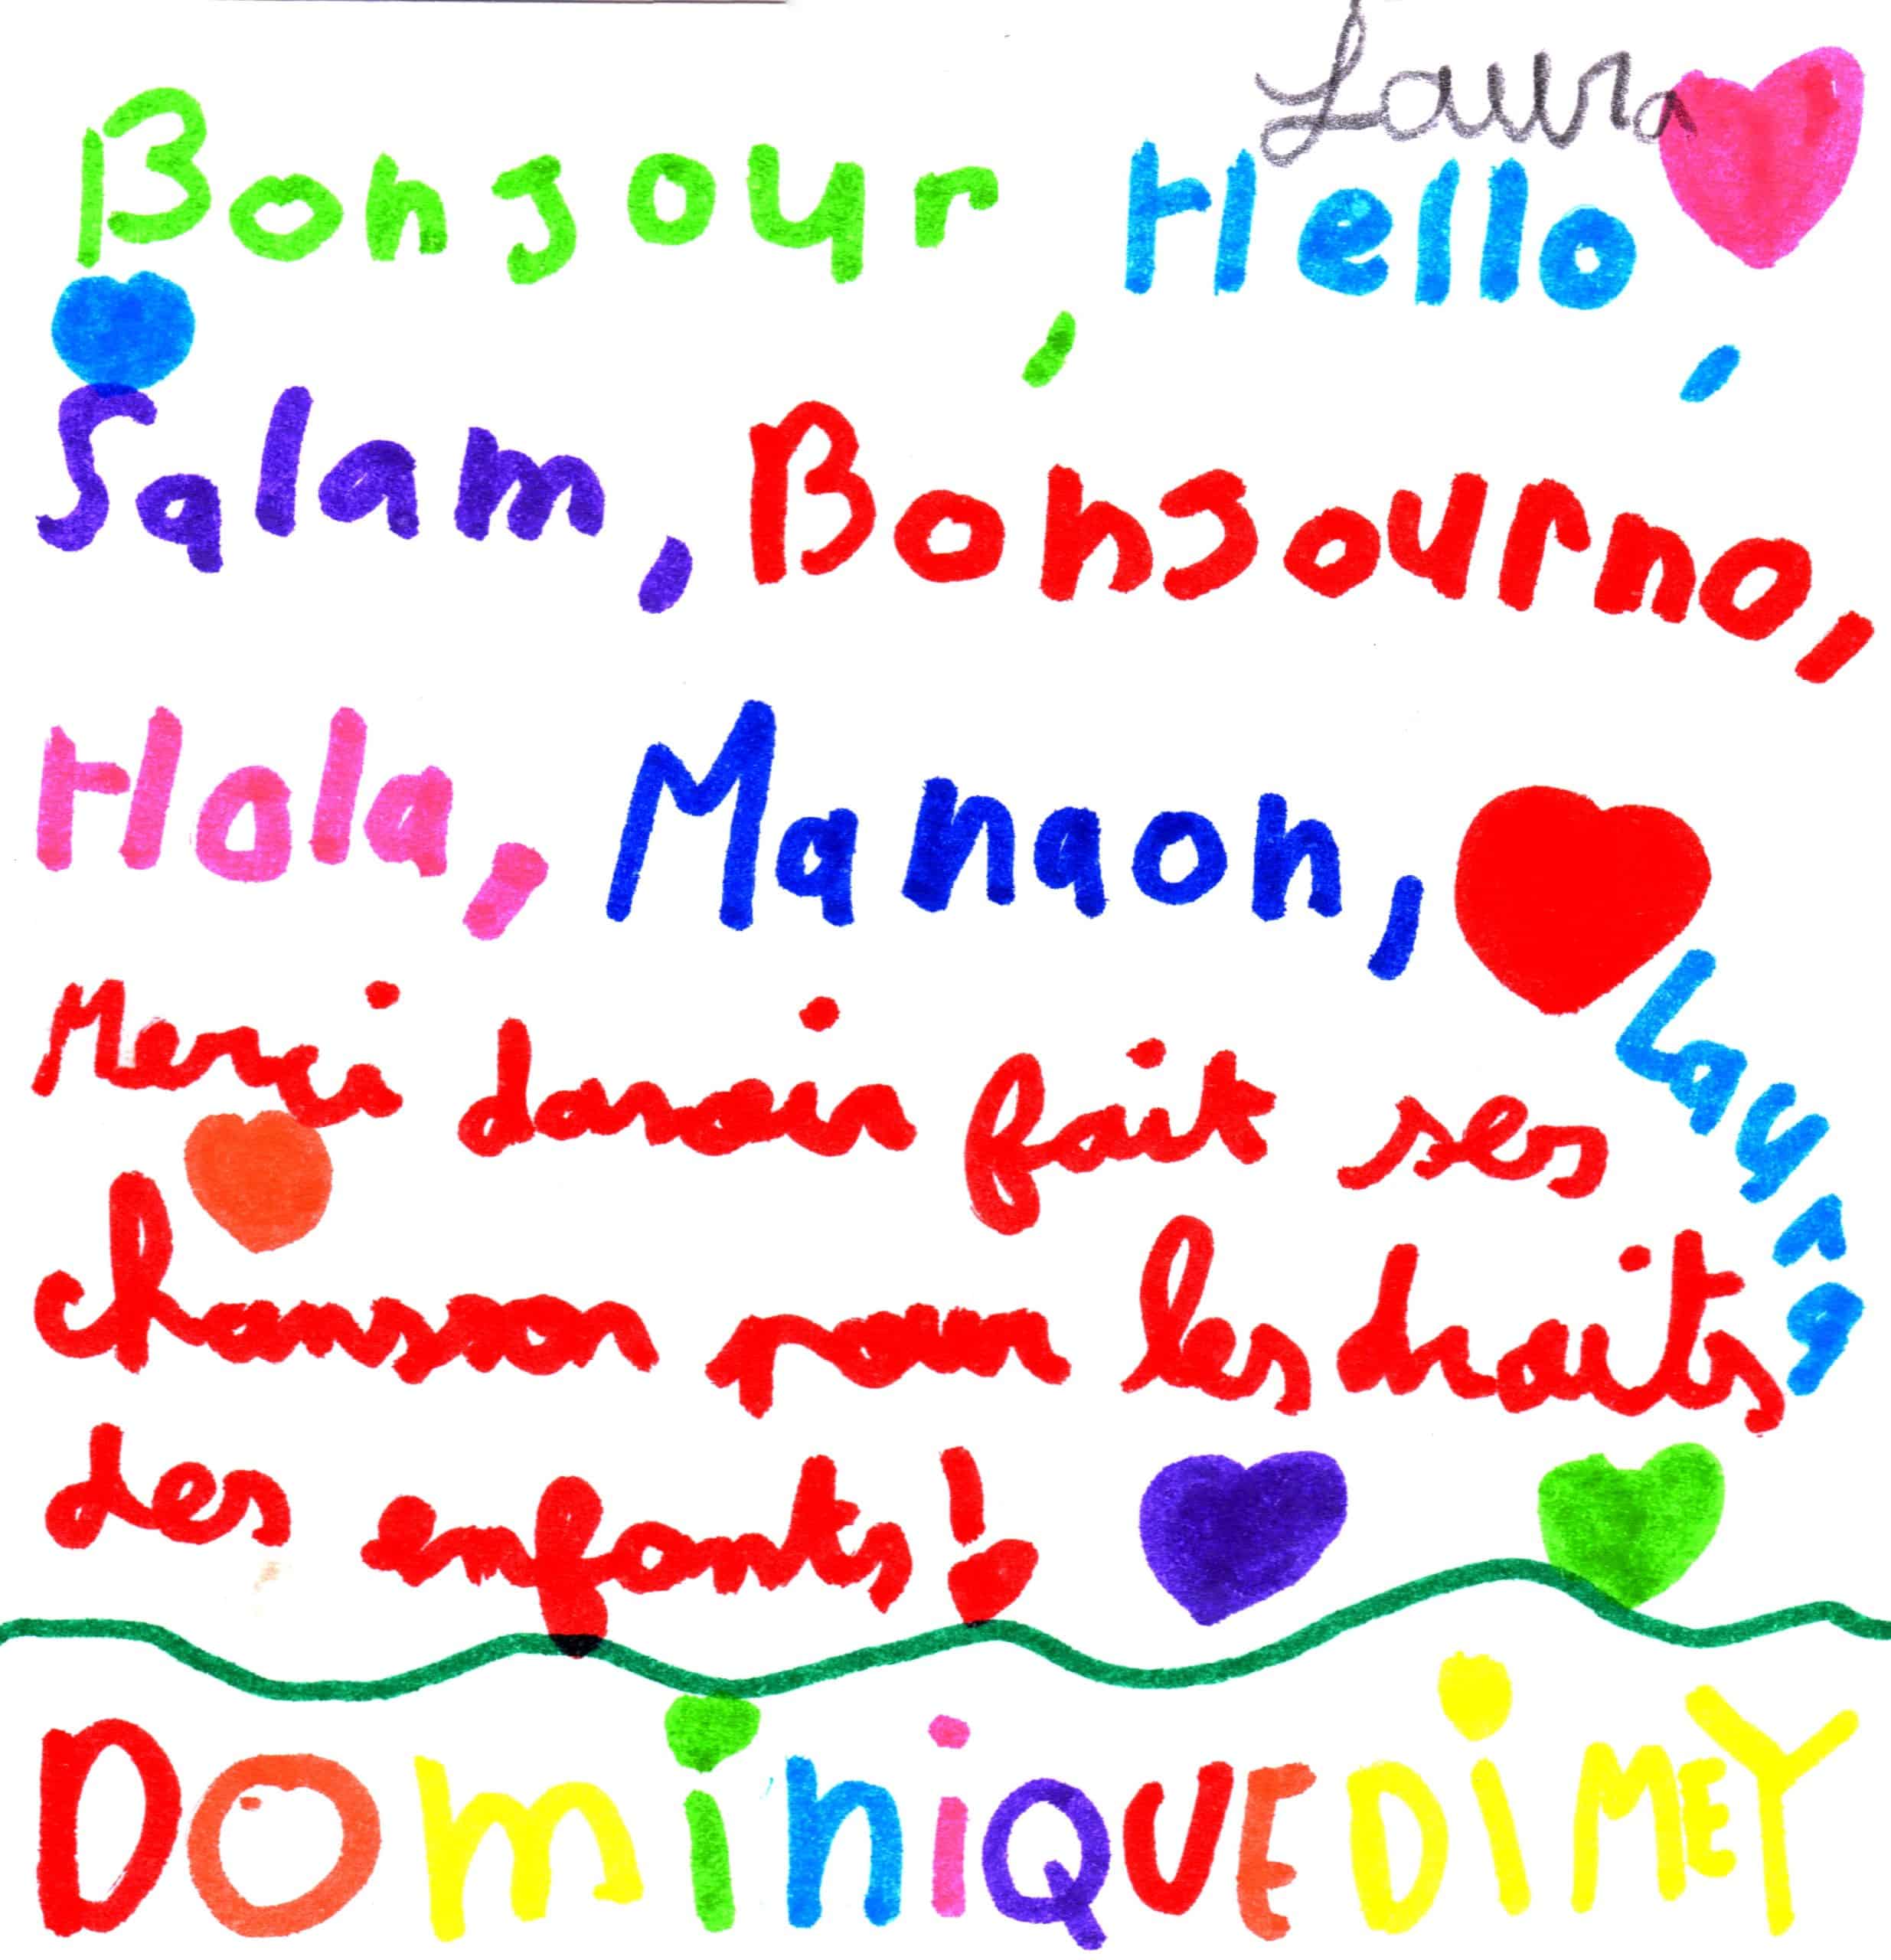 Laura
Bonjour, Hello,
Salam, Bonjourno,
Hola, Manaon,
Merci davoir fait ses
Laura
chansson pour les droits
des enfants!
DOminiQUE DiMEY